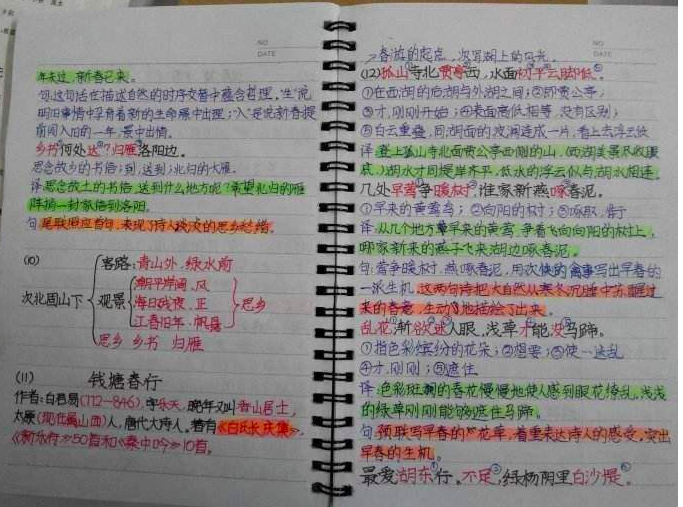 NO
DATE
年未过,新春已来。
句:这句话在描述自然的时序交替中蕴含哲理,"生"说
明旧事情中孕育着新的生命展中出理;"入"是说新春提
前闯入旧的一年,景中出情。
乡书何处达?归雁洛阳边。
思念故乡的书信;到,送到;北归的大雁。
译:思念故土的书信,送到什么地方呢?希望北归的雁
阵捎一封家信到洛阳。
句:尾联照应首句,表现了诗人淡淡的思乡愁绪。
(10)
次北固山下
客路:青山外、绿水前
观景
潮平岸阔、风
海日残夜、正
江春旧年、帆悬
思乡
思乡 乡书 归雁
(11) 钱塘春行
作者:白居易(772-846),字乐天,晚年又叫香山居士,
太原(现在属山西)人,唐代大诗人,著有《白氏长庆集》、
《新乐府》50首和《秦中吟》10首。
NO
DATE
→春游的起点,次写湖上的风光。
(12)孤山寺北贾亭西,水面初平云脚低。
①在西湖的后湖与外湖之间;②即贾公亭;
③才,刚刚开始;④表面高低相等,没有区别;
⑤白云重叠,同湖面的波澜连成一片,看上去浮云很
译:登上孤山寺北面贾公亭西侧的山,西湖美景尽收眼
底,湖水才同堤岸齐平,低水的浮云似与湖水相连。
几处早莺争暖树,谁家新燕啄春泥。
①早来的黄莺鸟;②向阳的树;③啄取、衔于
译:从几个地方早来的黄莺,争着飞向向阳的树上,
哪家新来的燕子飞来湖边啄春泥。
句:莺争暖树、燕啄春泥,用欢快的禽事写出早春的
一派生机,这两句诗把大自然从寒冬沉睡中苏醒过
来的春意,生动地描绘了出来。
乱花渐欲迷人眼,浅草才能没马蹄。
①指色彩缤纷的花朵;②想要;③使…迷乱
④才,刚刚;⑤遮住
译:色彩斑斓的春花慢慢地使人感到眼花缭乱,浅浅
的绿草刚刚能够遮住马蹄。
句:颈联写早春的"花草",着重表达诗人的感受,突出
早春的生机。
最爱湖东行不足,绿杨阴里白沙堤。